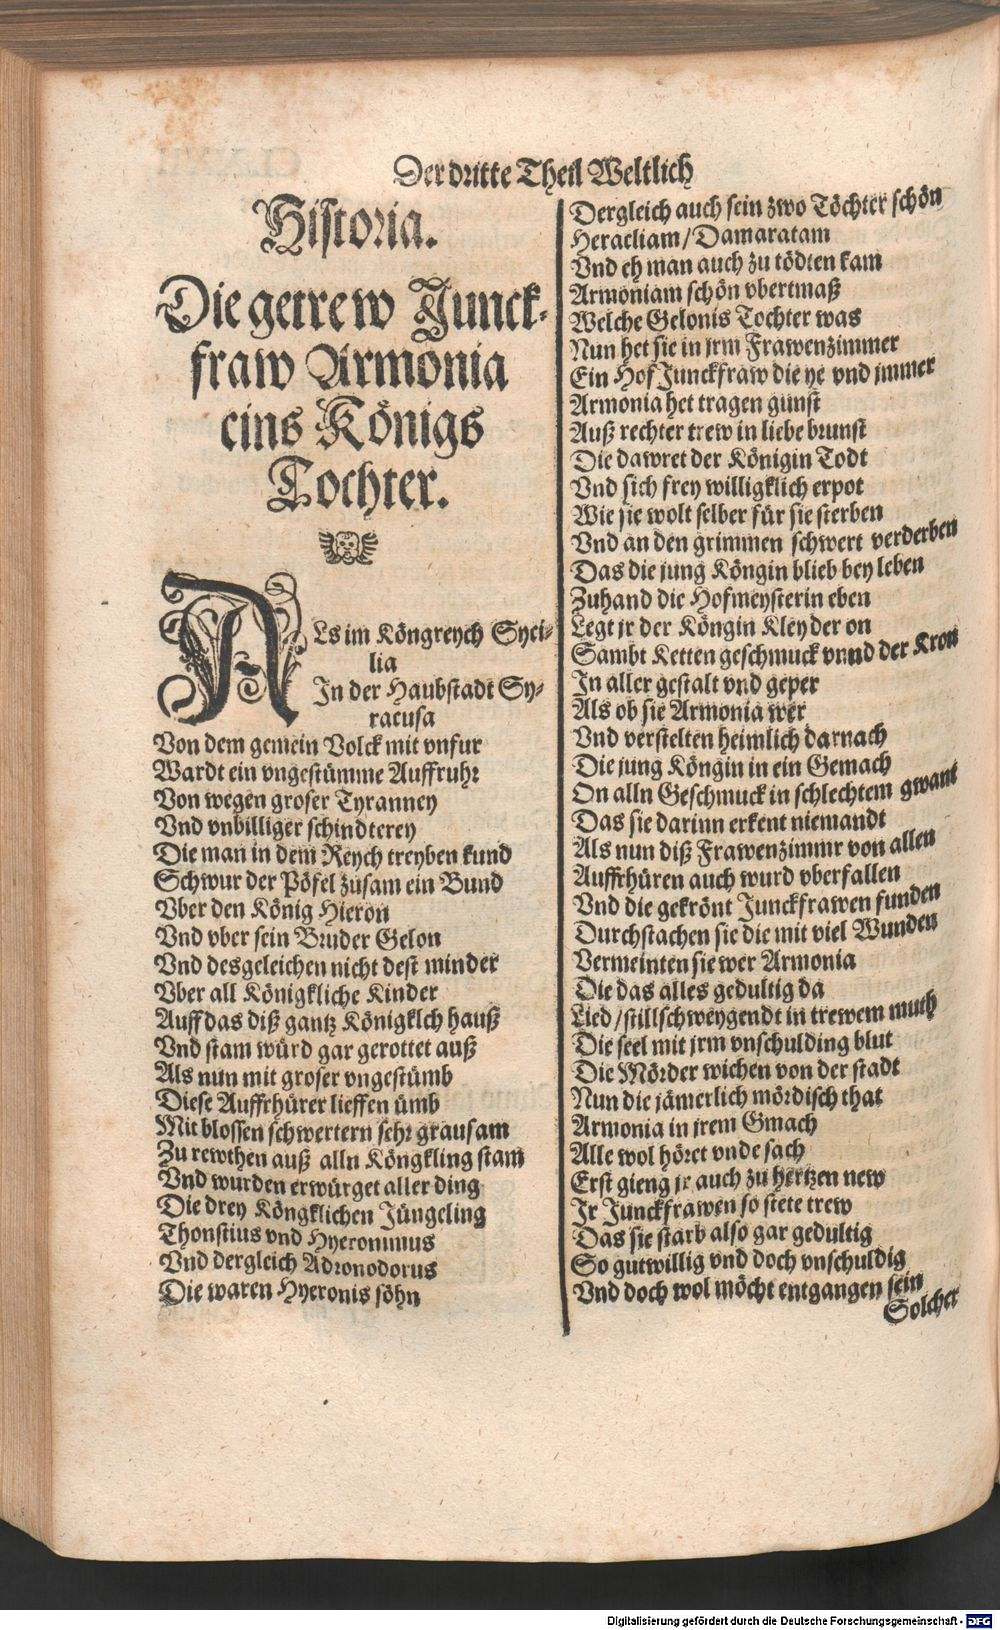 Der dritte Theil Weltlich
Historia.
Die getrew Junck-
fraw Armonia
eins Königs
Tochter.
ALs im Köngreych Syci-
lia
In der Haubstadt Sy-
racusa
Von dem gemein Volck mit vnfur
Wardt ein vngestümme Auffruhr
Von wegen groser Tyranney
Vnd vnbilliger schinderey
Die man in dem Reych treyben kund
Schwur der Pöfel zusam ein Bund
Vber den König Hieron
Vnd vber sein Bruder Gelon
Vnd desgeleichen nicht dest minder
Vber all Königkliche Kinder
Auff das diß gantz Königklch hauß
Vnd stam würd gar gerottet auß
Als nun mit groser vngestümb
Diese Auffrhürer lieffen ümb
Mit blossen schwertern sehr grausam
Zu rewthen auß alln Köngkling stam
Vnd wurden erwürget aller ding
Die drey Köngklichen Jüngeling
Thonstius vnd Hyeronimus
Vnd dergleich Adronodorus
Die waren Hyeronis söhn
Dergleich auch sein zwo Töchter schön
Heracliam/Damaratam
Vnd eh man auch zu tödten kam
Armoniam schön vbertmaß
Welche Gelonis Tochter was
Nun het sie in jrm Frawenzimmer
Ein HofJunckfraw die ye vnd jmmer
Armonia het tragen gunst
Auß rechter trew in liebe brunst
Die dawret der Königin Todt
Vnd sich frey willigklich erpot
Wie sie wolt selber für sie sterben
Vnd an den grimmen schwert verderben
Das die jung Köngin blieb bey leben
Zuhand die Hofmeysterin eben
Legt jr der Köngin Kleyder on
Sambt Ketten geschmuck vnnd der Kron
In aller gestalt vnd geper
Als ob sie Armonia wer
Vnd verstelten heimlich darnach
Die jung Köngin in ein Gemach
On alln Geschmuck in schlechtem gwant
Das sie darinn erkent niemandt
Als nun diß Frawenzimmr von allen
Auffrhüren auch wurd vberfallen
Vnd die gekrönt Junckfrawen funden
Durchstachen sie die mit viel Wunden
Vermeinten sie wer Armonia
Die das alles gedultig da
Lied/stillschweygendt in trewem muth
Die seel mit jrm vnschulding blut
Die Mörder wichen von der stadt
Nun die jämerlich mördisch that
Armonia in jrem Gmach
Alle wol höret vnde sach
Erst gieng jr auch zu hertzen new
Jr Junckfrawen so stete trew
Das sie starb also gar gedultig
So gutwillig vnd doch vnschuldig
Vnd doch wol möcht entgangen sein
Solcher
Digitalisierung gefördert durch die Deutsche Forschungsgemeinschaft - DFG